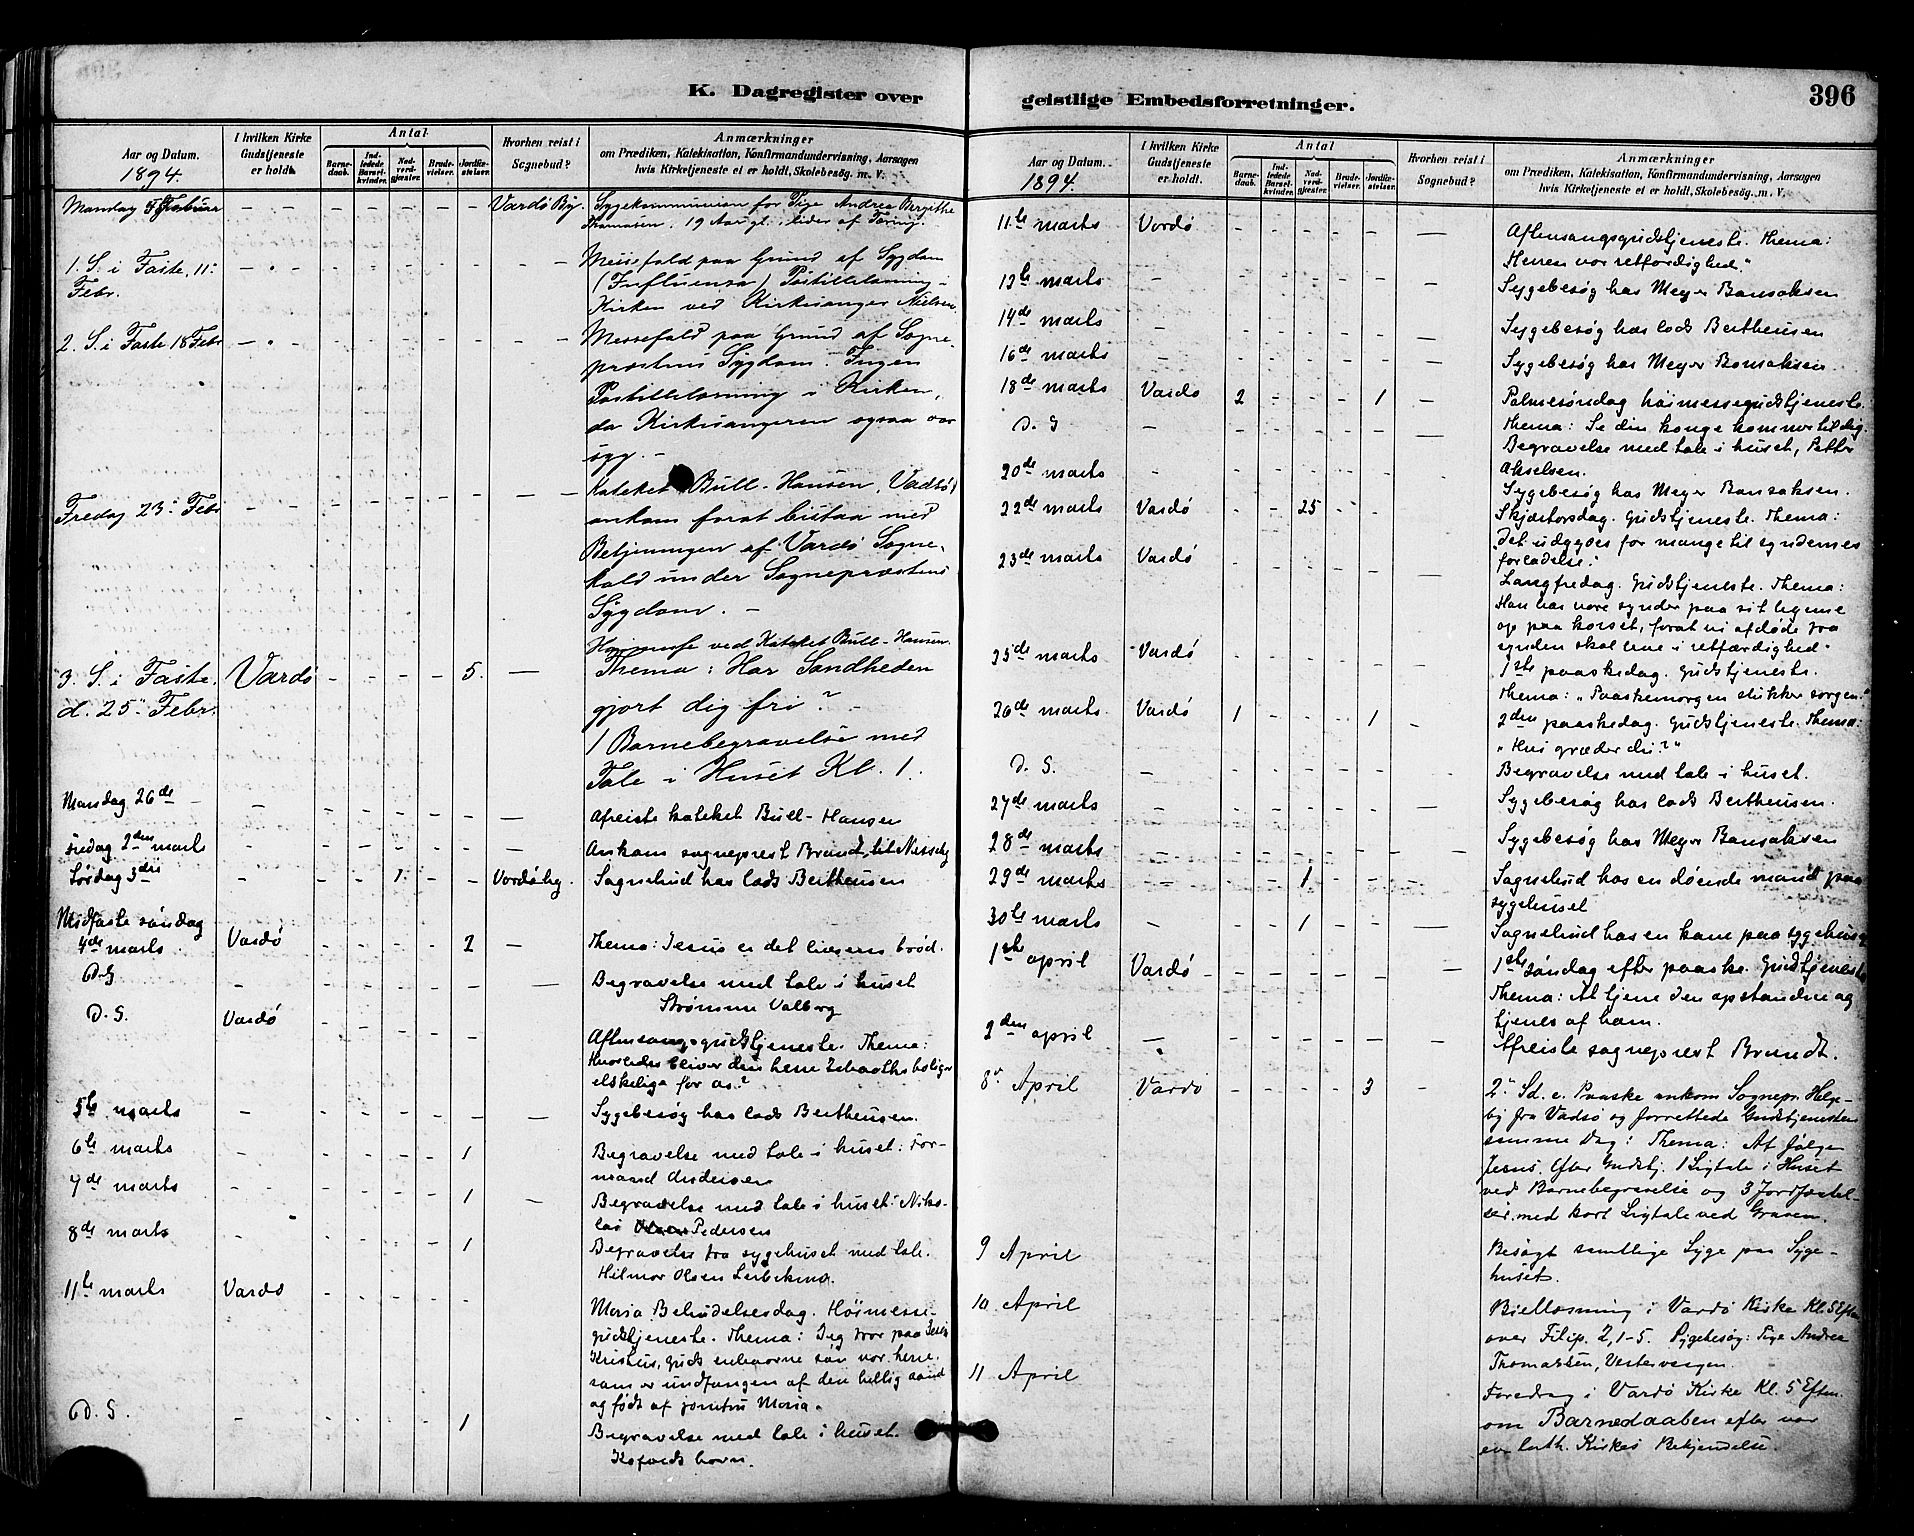 K. Dagregister over
Aar og Datum.
1894.
I hvilken Kirke
Gudstjeneste
er holdt.
Antal
Barne-
daab.
Ind-
ledede
Barsel-
kvinder.
Nad-
verd-
gjæster.
Brude-
vielser.
Jordfæ-
stelser.
Hvorhen reist i
Sognebud?
Anmærkninger
om Prædiken, Katekisation, Konfirmandundervisning, Aarsagen
hvis Kirketjeneste ei er holdt, Skolebesøg. m. v.
Mandag 5 Februar - - - - - - Vardø By. Sygekommunion for Pige Andrea Bergithe
Thomasen, 19 Aar gl., lider af Tæring.
1. S. i Faste, 11: - - - - - - - Messefald paa Grund af Sygdom
Febr. (Influensa) Postillelæsning i
Kirken ved Kirkesanger Nielsen.
2. S. i Faste 18 Febr - - - - - - - Messefald paa Grund af Sogne-
præstens Sygdom. Ingen
Postillelæsning i Kirken,
da Kirkesangeren ogsaa var
syg. -
Fredag 23: Febr - - - - - - - Kateket Bull-Hansen, Vadsø,
ankom forat bistaa med
Betjeningen af Vardø Sogne-
kald under Sognepræstens
Sygdom. -
Høimesse ved Kateket Bull-Hansen.
3. S. i Faste. Vardø - - - - 5. - Thema: Har Sandheden
d. 25: Febr. gjort dig fri? -
1 Barnebegravelse med
Tale i Huset Kl. 1.
Mandag 26de - - - - - - - Afreiste kateket Bull-Hansen
Fredag 2den marts - - - - - - Ankom sogneprest Brandt, til Nesseby
Lørdag 3die - - - 1 - - Vardø by. Sognebud hos lods Berthensen
Midfaste søndag
4de marts. Vardø - - - - 2 - Thema: Jesus er det livsens brød.
D. S - - - - - - - Begravelse med tale i huset
Strømme Valborg
D. S. Vardø - - - - - Aftensangsgudstjeneste. Thema:
Hvorledes bliver den herre Zebaoths bolig
elskelige for os?
5te marts - - - - - - - Sygebesøg hos lods Berthensen.
6te marts - - - - - 1 Begravelse med tale i huset: For-
mand Andersen
7de marts - - - - - 1 - Begravelse med tale i huset: Niko-
lai Pedersen
8de marts - - - - 1 Begravelse fra sygehuset med tale.
Hilmar Olsen
11te marts Vardø - - - - - Maria Bebudelsesdag. Høimesse-
gudstjeneste. Thema: Jeg tror paa Jesus
Kristus, guds enbaarne søn vor herre.
som er undfangen af den hellig aand
og født af jomfru Maria.
D. S. - - - - - 1 Begravelse med tale i huset.
Kofoeds barn.
geistlige Embedsforretninger.
396
Aar og Datum.
1894.
I hvilken Kirke
Gudstjeneste
er holdt.
Antal
Barne-
daab.
Ind-
ledede
Barsel-
kvinder.
Nad-
verd-
gjæster.
Brude-
vielser.
Jordfæ-
stelser.
Hvorhen reist i
Sognebud?
Anmærkninger
om Prædiken, Katekisation, Konfirmandundervisning, Aarsagen
hvis Kirketjeneste ei er holdt, Skolebesøg. m. v.
11te marts Vardø - - - - - - Aftensangsgudstjeneste. Thema:
Herren vor retfærdighed."
13de marts - - - - - - - Sygebesøg hos Meyer Bansaksen
14de marts - - - - - - - Sygebesøg hos lods Berthensen
16de marts - - - - - - - Sygebesøg hos Meyer Bansaksen.
18de marts Vardø 2 - - - 1 - Palmesøndag høimessegudstjeneste.
Thema: Se din konge kommer til dig.
D. S - - - - - - - Begravelse med tale i huset, Petter
Akselsen.
20de marts - - - - - - - Sygebesøg hos Meyer Bansaksen.
22de marts Vardø - - 25 - - - Skjærtorsdag. Gudstjeneste. Thema:
Det udgydes for mange til syndernes
forladelse."
23de marts Vardø - - - - - - Langfredag. Gudstjeneste. Thema:
Han bar vore synder paa sit legeme
op paa korset, forat vi afdøde fra
synden skal leve i retfærdighed.
25de marts Vardø - - - - - - 1ste paaskedag. Gudstjeneste.
Thema: "Paaskemorgen slukker sorgen."
26de marts. Vardø 1 - - - 1 - 2den paaskedag. Gudstjeneste. Thema:
"Hvi græder du?"
D. S. - - - - - - Begravelse med tale i huset.
27de marts - - - - - - - Sygebesøg hos lods Berthensen.
28de marts - - - - - - - Sygebesøg hos Meyer Bansaksen
29de marts - - - 1 - - - Sognebud hos en døende mand paa
sygehuset
30te marts - - - 1 - - - Sognebud hos en kone paa sygehuset
1ste april Vardø - - - - - - 1ste søndag efter paaske. Gudstjeneste
Thema: At tjene den opstandne og
tjenes af ham.
2den april - - - - - - - Afreiste sogneprest Brandt.
8de April Vardø - - - - 3 - 2: Sd. e. Paaske ankom Sognepr. Helge-
by fra Vadsø og forrettede Gudstjenesten
samme dag: Thema: At følge
Jesus. Efter Gudstj. 1 Ligtale i Huset
ved Barnebegravelse og 3 Jordfæstel-
ser, med kort Ligtale ved Graven.
9 April Besøgt samtlige Syge paa Syge-
huset.
10 April Bibellæsning i Vardø Kirke Kl. 5 Eftm
over Filip. 2, 1-5. Sygebesøg: Pige Andrea
Thomassen, Vestervaagen.
11 April Foredrag i Vardø Kirke Kl. 5 Eftm.
om Barnedaaben efter vor
ev. luth. Kirkes Bekjendelse.